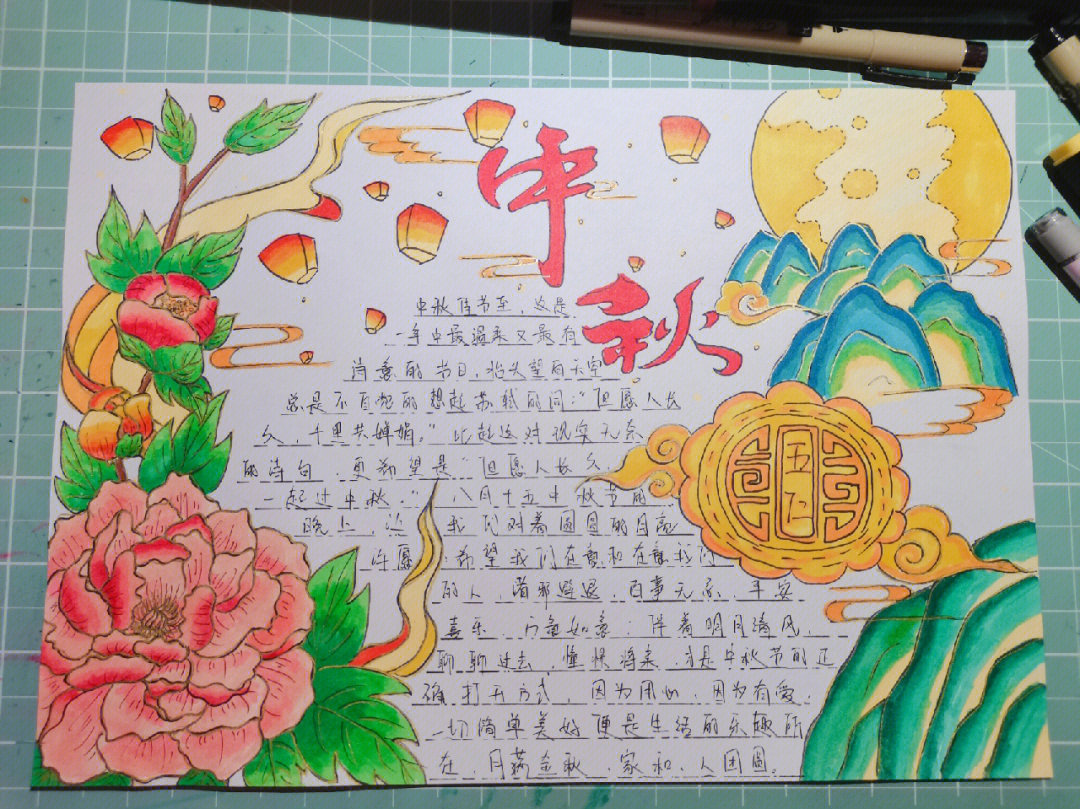 中秋
中秋佳节至，这是
一年中最温柔又最有
诗意的节日，抬头望向天空
总是不自觉的想起苏轼的词：“但愿人长
久，千里共婵娟。”比起这对现实无奈
的诗句，更希望是“但愿人长久
一起过中秋。”八月十五中秋节的
晚上，让我们对着圆圆的月亮
许愿：希望我们在意和在意我们
的人，诸邪避退，百事无忌，平安
喜乐，万事如意；伴着明月清风，
聊聊过去，憧憬将来，才是中秋节的正
确打开方式，因为用心，因为有爱，
一切简单美好便是生活的乐趣所
在，月满金秋，家和，人团圆。
五仁